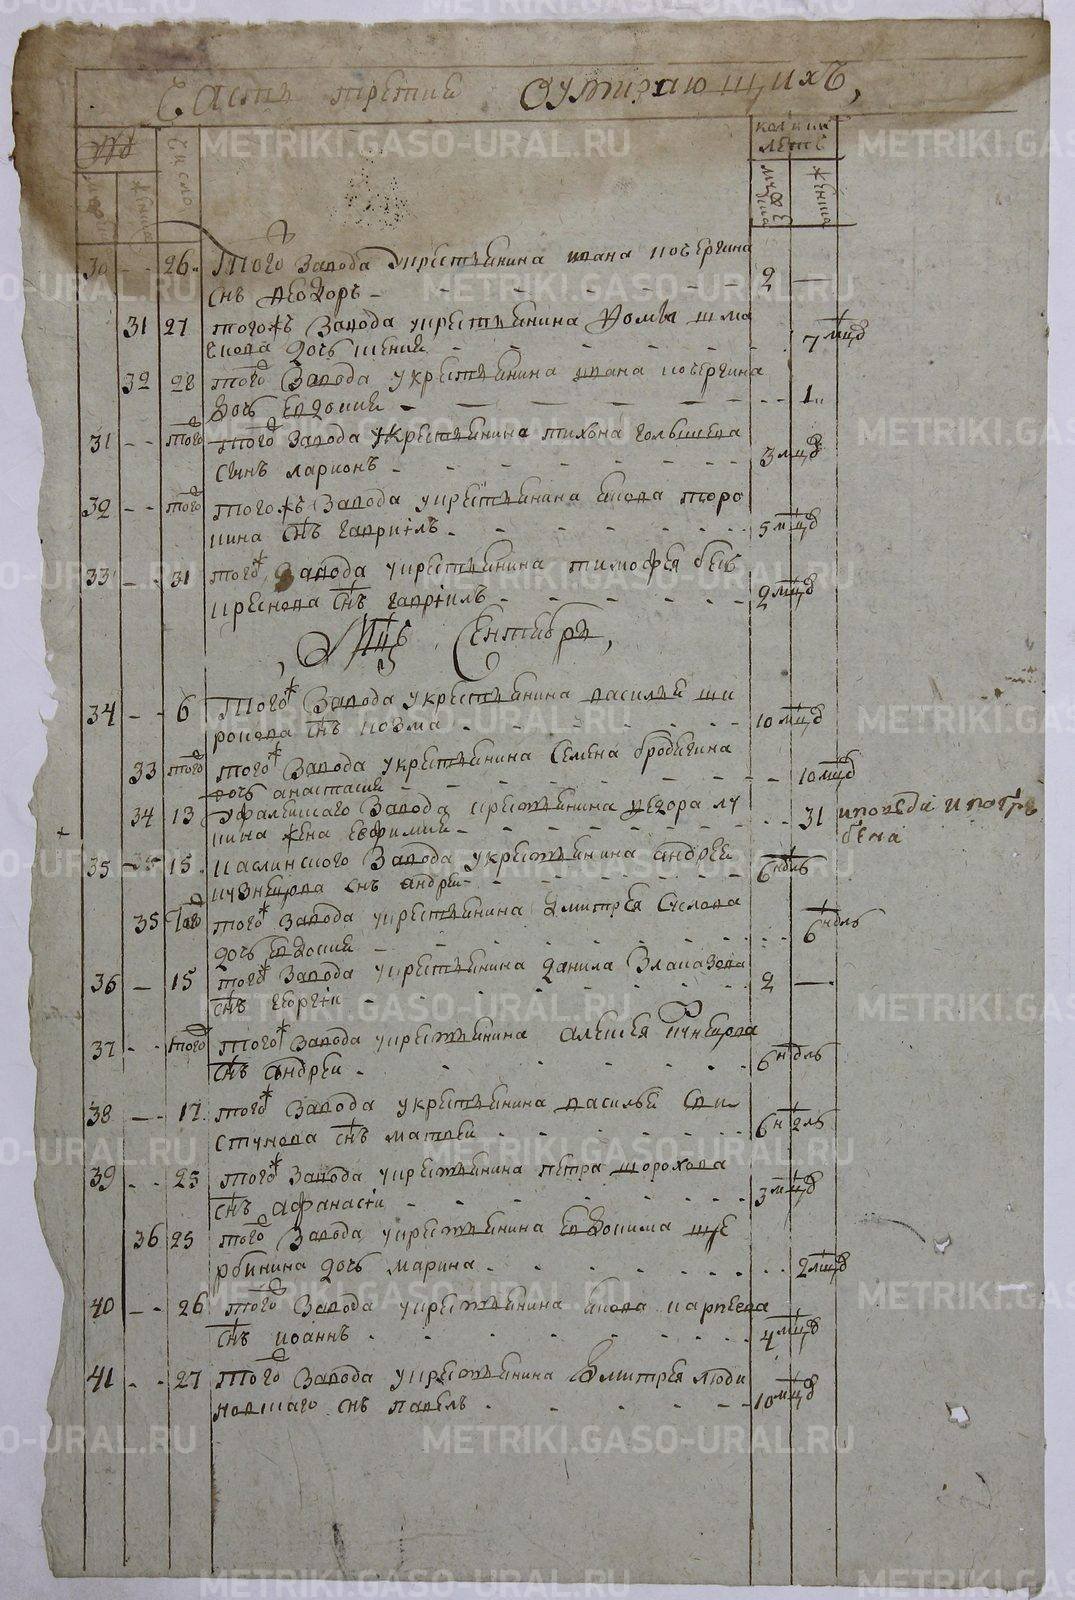 Часть третия О умирающихъ,
№
число
коликихъ летъ
мужеска
женска
30 - - 26 того завода у крестьянина ивана
снъ Феодоръ - 2 —
31 27 тогожъ завода у крестьянина Фомы шма
кова дочь - 7 мцо
32 28 того завода у крестьянина ивана
дочь Евдокия - 1
31 - - того того завода у крестьянина тихона голышева
сынъ ларионъ - 3 мцо
32 - - того тогожъ завода у крестьянина якова торо
пина снъ гавриилъ - 5 мцо
33 - - 31 тогож завода у крестьянина тимофея
снъ гавриилъ - 2 мцо
Мцъ Сентябрь,
34 - - 6 тогож завода у крестьянина василья ши
рокова снъ козма - 10 мцо
33 того тогож завода у крестьянина Семена бродягина
дочь анастасия - 10 мцо
34 13 завода крестьянина Федора лу
кина жена Евфимия - 31 исповеда и погре
бена
35 - 15 каслинского завода у крестьянина андрея
кузнецова снъ андрей - 6 ндль
35 того тогож завода у крестьянина дмитрея Суслова
дочь Евдокия - 6 ндль
36 — 15 тогож завода у крестьянина данила
снъ георгии - 2 —
37 - - того тогож завода у крестьянина алексея кузнецова
снъ андреи - 6 ндль
38 - - 17 тогож завода у крестьянина василья сви
стунова снъ матвеи - 6 ндль
39 - - 25 тогож завода у крестьянина петра шорохова
снъ афанасии - 3 мцо
36 25 того завода у крестьянина Евдокима ще
рбинина дочь марина - 2 мцо
40 - - 26 того завода у крестьянина якова карпеева
снъ иоаннъ - 4 мцо
41 - - 27 того завода у крестьянина дмитрея люди
новшаго снъ павелъ - 10 мцо
METRIKI.GASO-URAL.RU